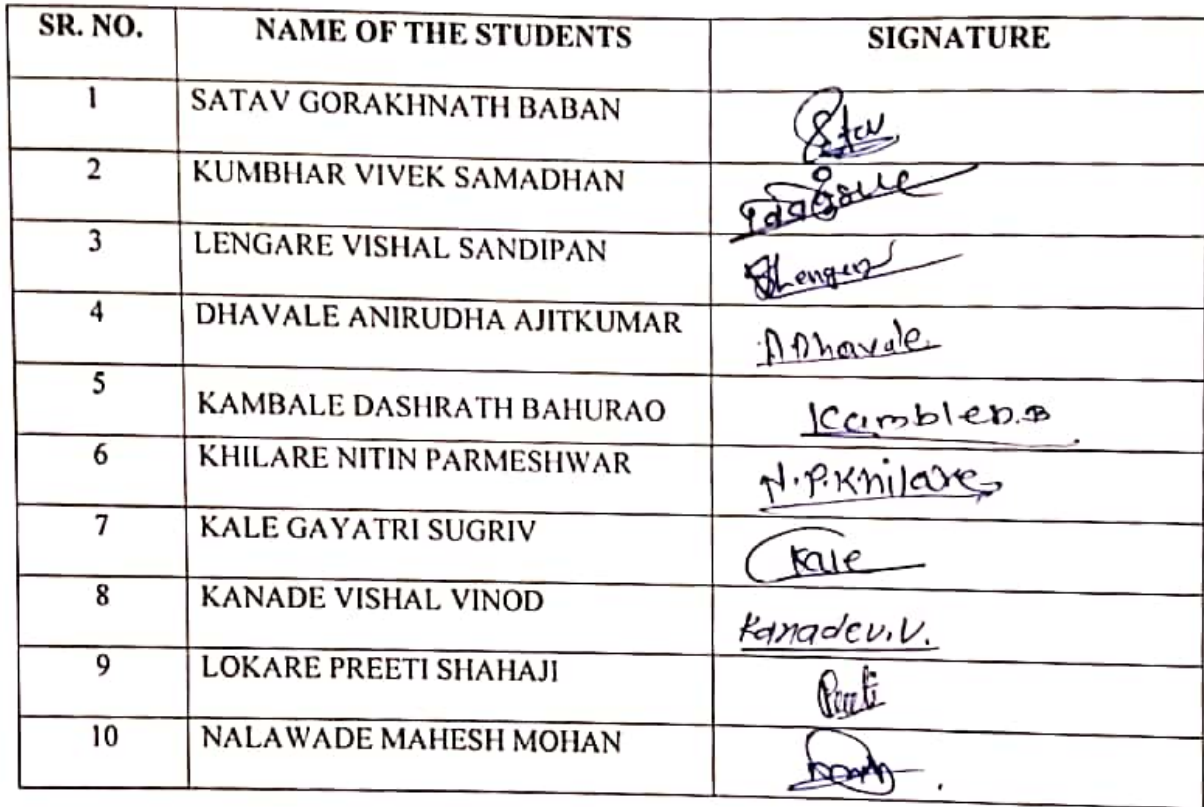 SR. NO. NAME OF THE STUDENTS SIGNATURE
1 SATAV GORAKHNATH BABAN
2 KUMBHAR VIVEK SAMADHAN
3 LENGARE VISHAL SANDIPAN
4 DHAVALE ANIRUDHA AJITKUMAR A Dhavale.
5 KAMBALE DASHRATH BAHURAO Kamble D.B
6 KHILARE NITIN PARMESHWAR N.P.Khilare
7 KALE GAYATRI SUGRIV Kale
8 KANADE VISHAL VINOD Kanade V.V.
9 LOKARE PREETI SHAHAJI Preeti
10 NALAWADE MAHESH MOHAN